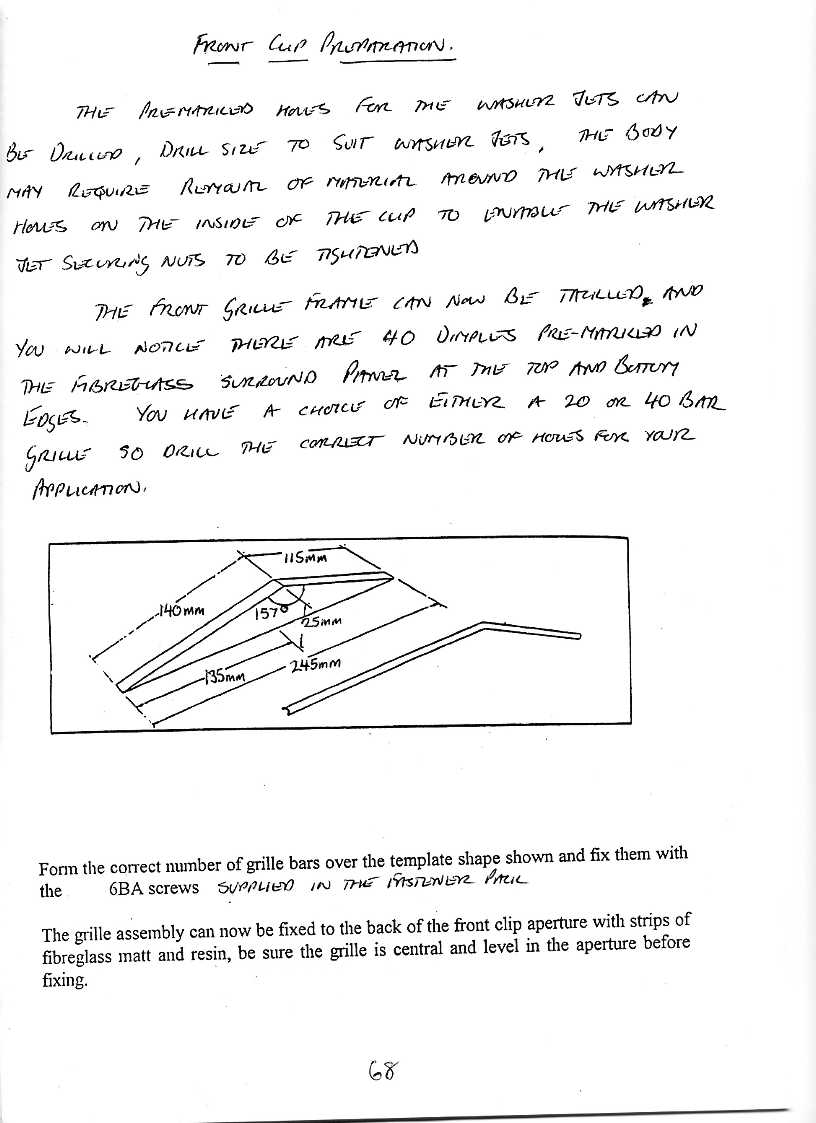 FRONT CLIP PREPARATION.
THE PREMARKED HOLES FOR THE WASHER JETS CAN
BE DRILLED, DRILL SIZE TO SUIT WASHER JETS, THE BODY
MAY REQUIRE REMOVAL OF MATERIAL AROUND THE WASHER
HOLES ON THE INSIDE OF THE CLIP TO ENABLE THE WASHER
JET SECURING NUTS TO BE TIGHTENED
THE FRONT GRILLE FRAME CAN NOW BE DRILLED, AND
YOU WILL NOTICE THERE ARE 40 DIMPLES PRE-MARKED IN
THE FIBREGLASS SURROUND PANEL AT THE TOP AND BOTTOM
EDGES. YOU HAVE A CHOICE OF EITHER A 20 OR 40 BAR
GRILLE SO DRILL THE CORRECT NUMBER OF HOLES FOR YOUR
APPLICATION.
115mm
140mm
157°
25mm
245mm
135mm
Form the correct number of grille bars over the template shape shown and fix them with
the 6BA screws SUPPLIED IN THE FASTENER PACK
The grille assembly can now be fixed to the back of the front clip aperture with strips of
fibreglass matt and resin, be sure the grille is central and level in the aperture before
fixing.
68